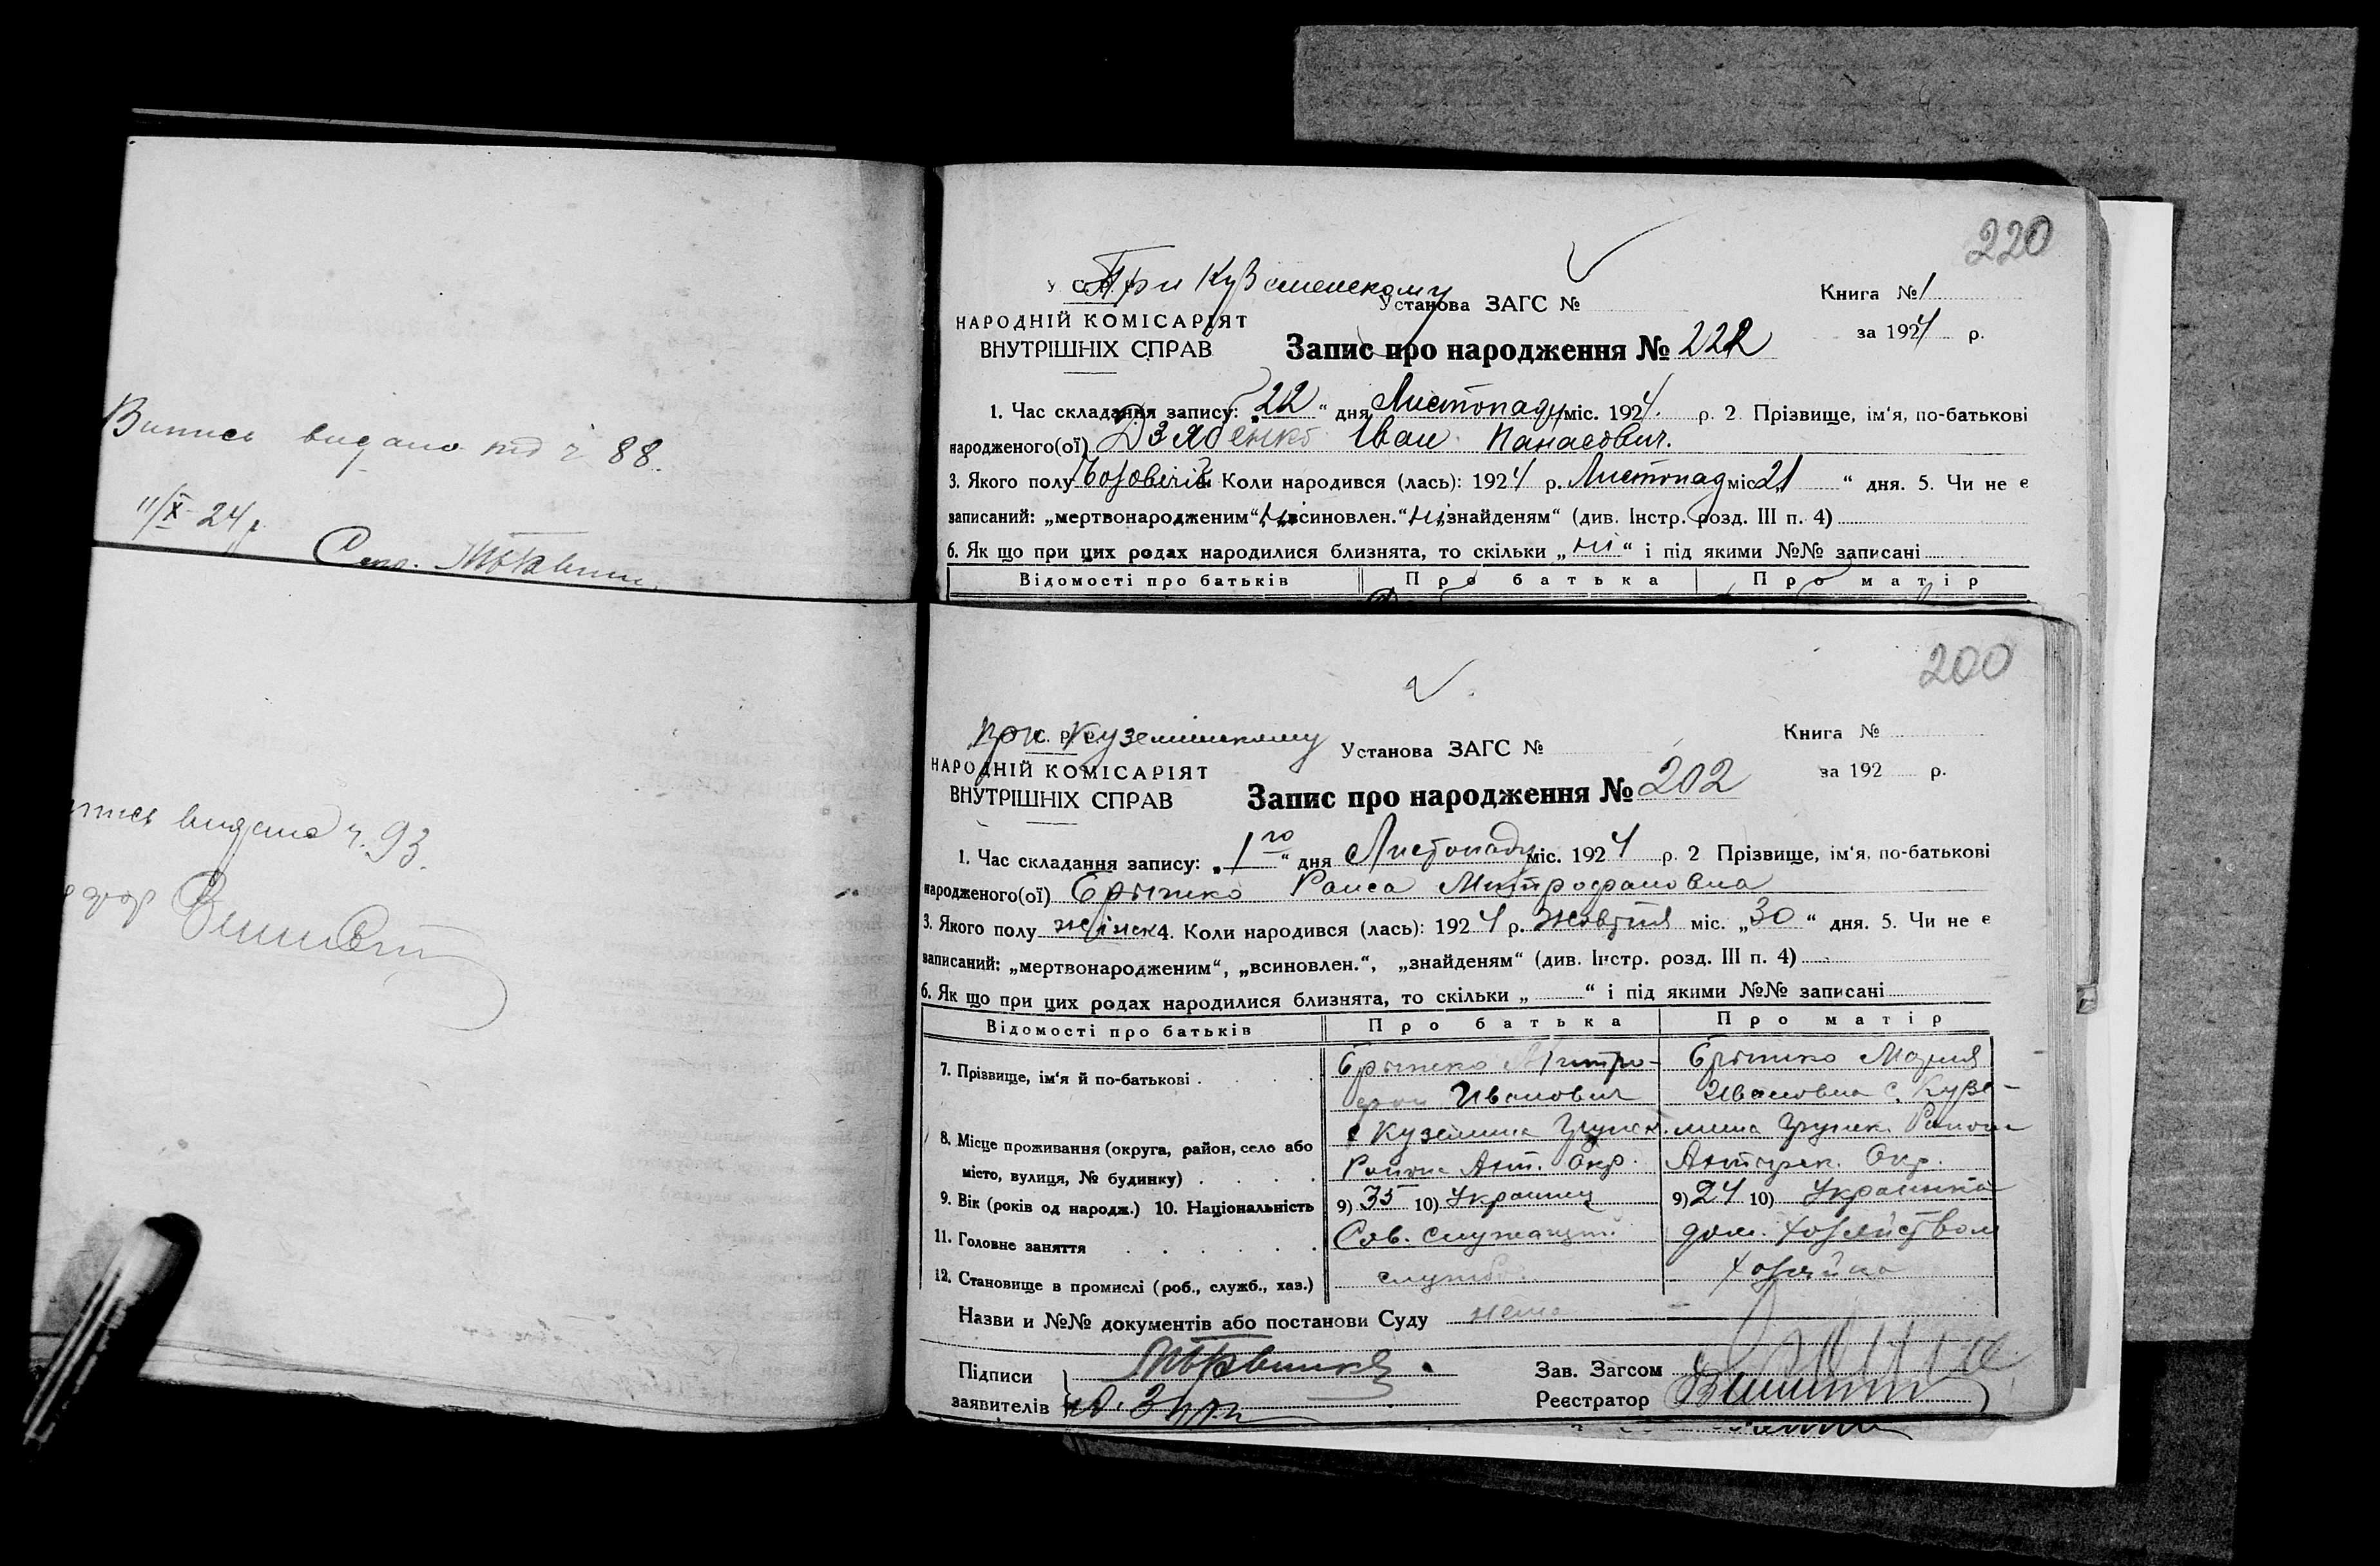 Випись видано під ч 88.
11/X 24 р
220
При Куземенскому
У. С. Р. Р.
Установа ЗАГС №
Книга № 1
НАРОДНІЙ КОМІСАРІЯТ
ВНУТРІШНІХ СПРАВ
за 1924 р.
Запис про народження № 222
1. Час складання запису: „22“ дня Листопаду міс. 1924. р. 2 Прізвище, ім‘я, по-батькові
народженого(ої) Дзябенко Іван Панасович.
3. Якого полу Чоловічий 4. Коли народився (лась): 1924 р. Листопад міс. 21 “ дня. 5. Чи не є
записаний: „мертвонародженим“, ні, „всиновлен.“ ні, „знайденям“ (див. Інстр. розд. III п. 4)
6. Як що при цих родах народилися близнята, то скільки „ні“ і під якими №№ записані
Відомості про батьків Про батька Про матір
200
При Куземинскому
У. С. Р. Р.
Установа ЗАГС №
Книга №
НАРОДНІЙ КОМІСАРІЯТ
ВНУТРІШНІХ СПРАВ
за 192 р.
Запис про народження № 202
видана ч. 93.
1. Час складання запису: „1го“ дня Листопаду міс. 1924 р. 2 Прізвище, ім‘я, по-батькові
народженого(ої) Раиса Митрофановна
3. Якого полу жінск 4. Коли народився (лась): 1924 р. Жовтня міс. „30“ дня. 5. Чи не є
записаний: „мертвонародженим“, „всиновлен.“, „знайденям“ (див. Інстр. розд. III п. 4)
6. Як що при цих родах народилися близнята, то скільки „ “ і під якими №№ записані
Відомості про батьків Про батька Про матір
7. Прізвище, ім‘я й по-батькові Митро- Мария
фан Иванович Ивановна с. Кузе-
8. Місце проживання (округа, район, село або с Куземина Грунск. мина Грунск. Района
місто, вулиця, № будинку) Района Ахт. Окр. Ахтирск. Окр.
9. Вік (років од народж.) 10. Національність 9) 35 10) Украинц 9) 24 10) Украинка
11. Головне заняття Сов. служащий дом. хозяйством
12. Становище в промислі (роб., служб., хаз.) служб. хозяйка
Назви и №№ документів або постанови Суду нема
Підписи
заявителів
Зав. Загсом
Реєстратор